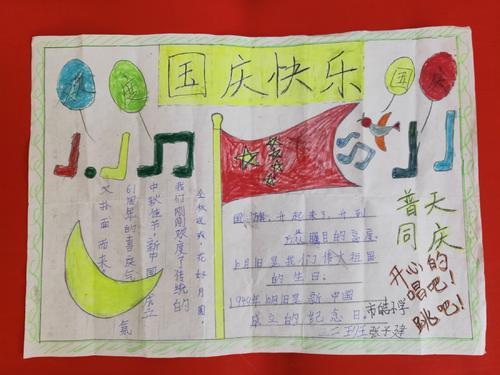 国庆快乐
欢
度
国
庆
金秋送爽,花好月圆,
我们刚刚欢度了传统的
中秋佳节,新中国成立
61周年的喜庆气氛
又扑面而来
国旗升起来了,升到
10月1日是我们伟大祖国
的生日。
1949年10月1日是新中国
成立的纪念日。
普天
同庆
开心的
唱吧!
跳吧!
二二班 张子建